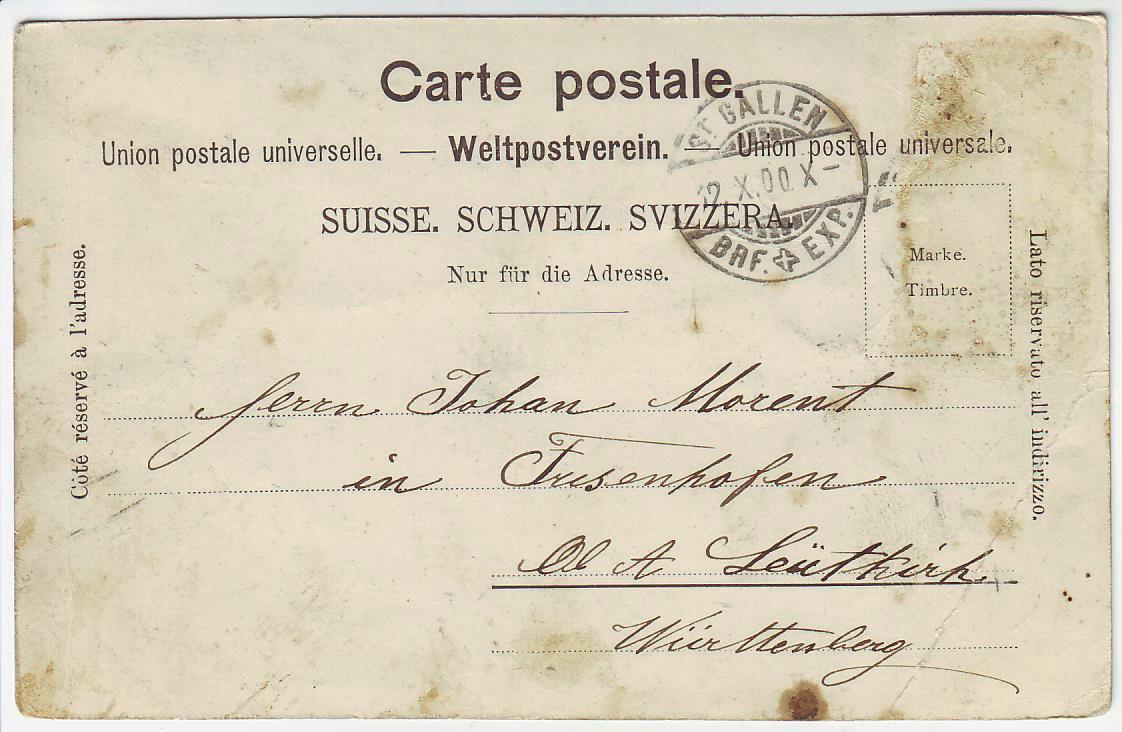 Carte postale.
Union postale universelle. — Weltpostverein. — Union postale universale.
SUISSE. SCHWEIZ. SVIZZERA.
Nur für die Adresse.
ST. GALLEN
X.00 X–
BRF. EXP.
Marke.
Timbre.
Côté réservé à l'adresse.
Lato riservato all' indirizzo.
Herrn Johan Morent
in Frisenhofen
Ob A Leütkirh
Württenberg